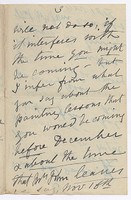 3
not do so, if
it interferes with
the time you might
be coming – but
I infer from what
you say about the
painting lessons that
you would be coming
before December
about the time
that Mrs
Nov 18th